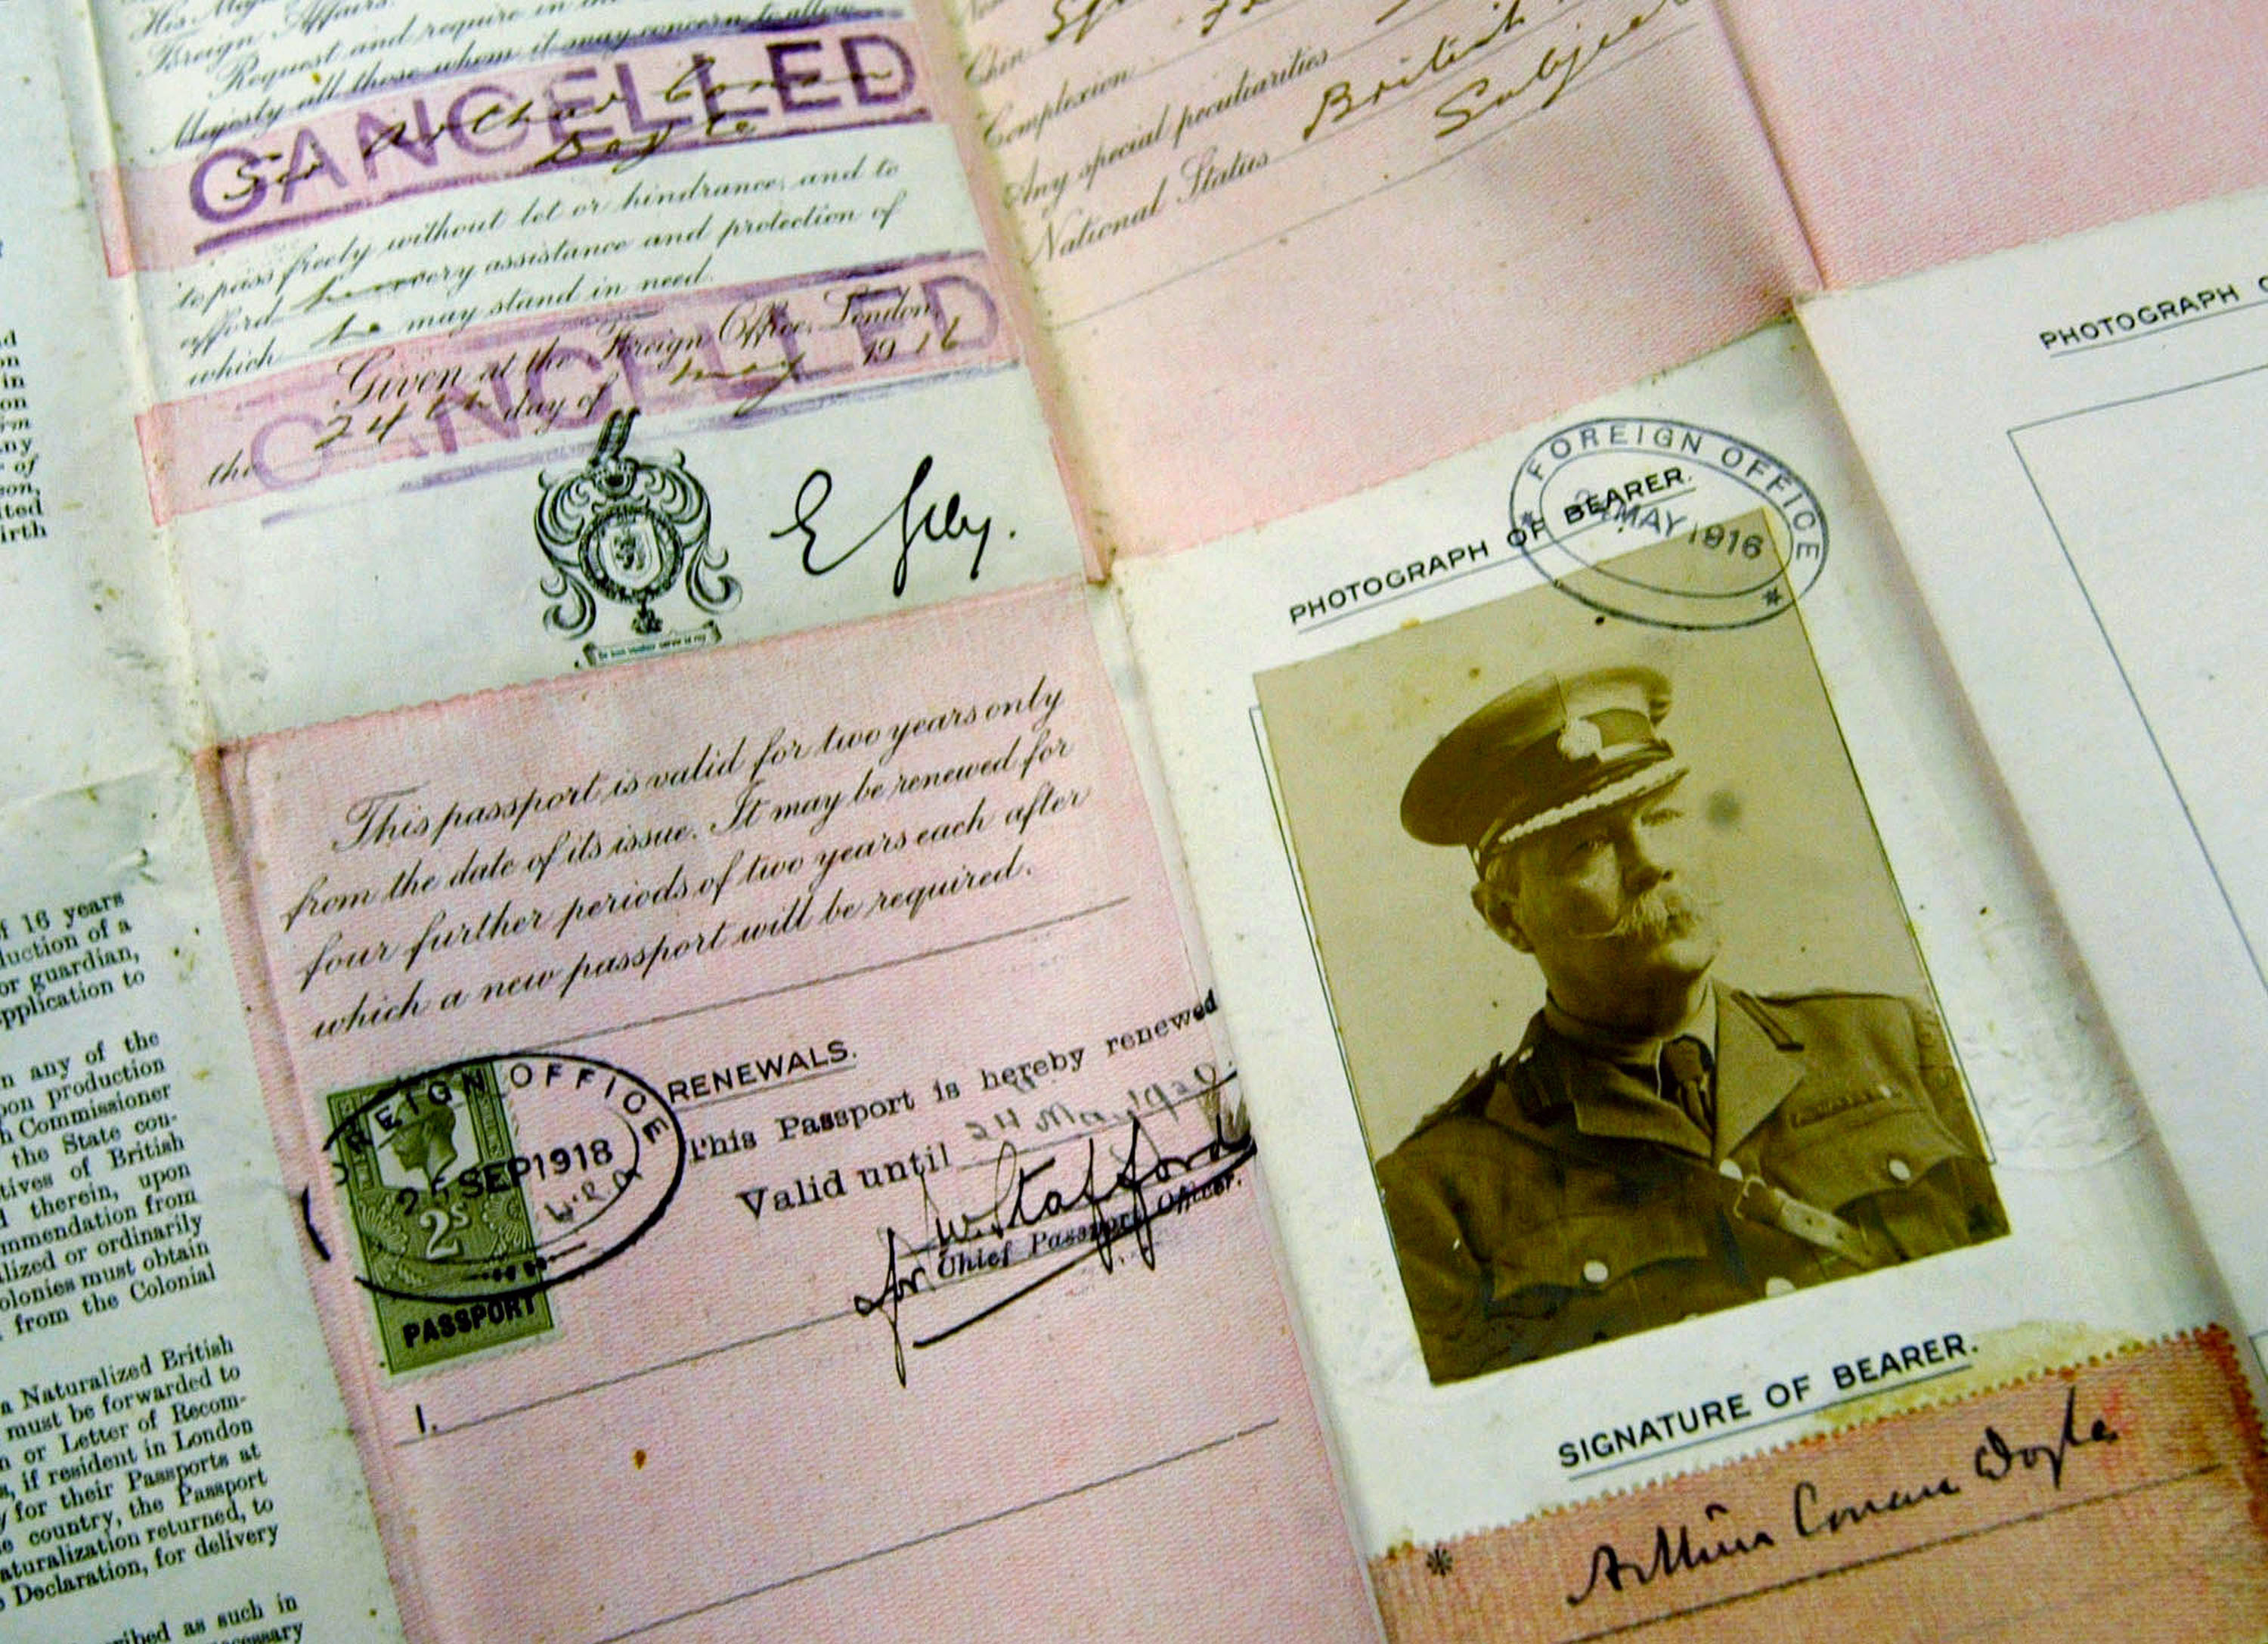 His Maj
Foreign Affairs.
Request and require in the
Majesty all those whom it may concern to allow
CANCELLED
Sir Arthur Conan
Doyle
to pass freely without let or hindrance, and to
afford him every assistance and protection of
which he may stand in need.
CANCELLED
Given at the Foreign Office, London,
the 24th day of May 1916
E Grey.
This passport is valid for two years only
from the date of its issue. It may be renewed for
four further periods of two years each after
which a new passport will be required.
RENEWALS.
This Passport is hereby renewed
Valid until 24 May 1920.
W Stafford
for Chief Passport Officer.
FOREIGN OFFICE
SEP 1918
2s
PASSPORT
1.
Chin
Complexion
Any special peculiarities
National Status British
Subject
FOREIGN OFFICE
MAY 1916
PHOTOGRAPH OF BEARER.
SIGNATURE OF BEARER.
* Arthur Conan Doyle
PHOTOGRAPH
d
on
in
on
rm
ny
of
son,
ited
irth
f 16 years
duction of a
or guardian,
pplication to
n any of the
pon production
h Commissioner
the State con-
tives of British
therein, upon
mmendation from
lized or ordinarily
olonies must obtain
from the Colonial
a Naturalized British
must be forwarded to
n or Letter of Recom-
s, if resident in London
y for their Passports at
e country, the Passport
aturalization returned, to
Declaration, for delivery
ribed as such in
ecessary